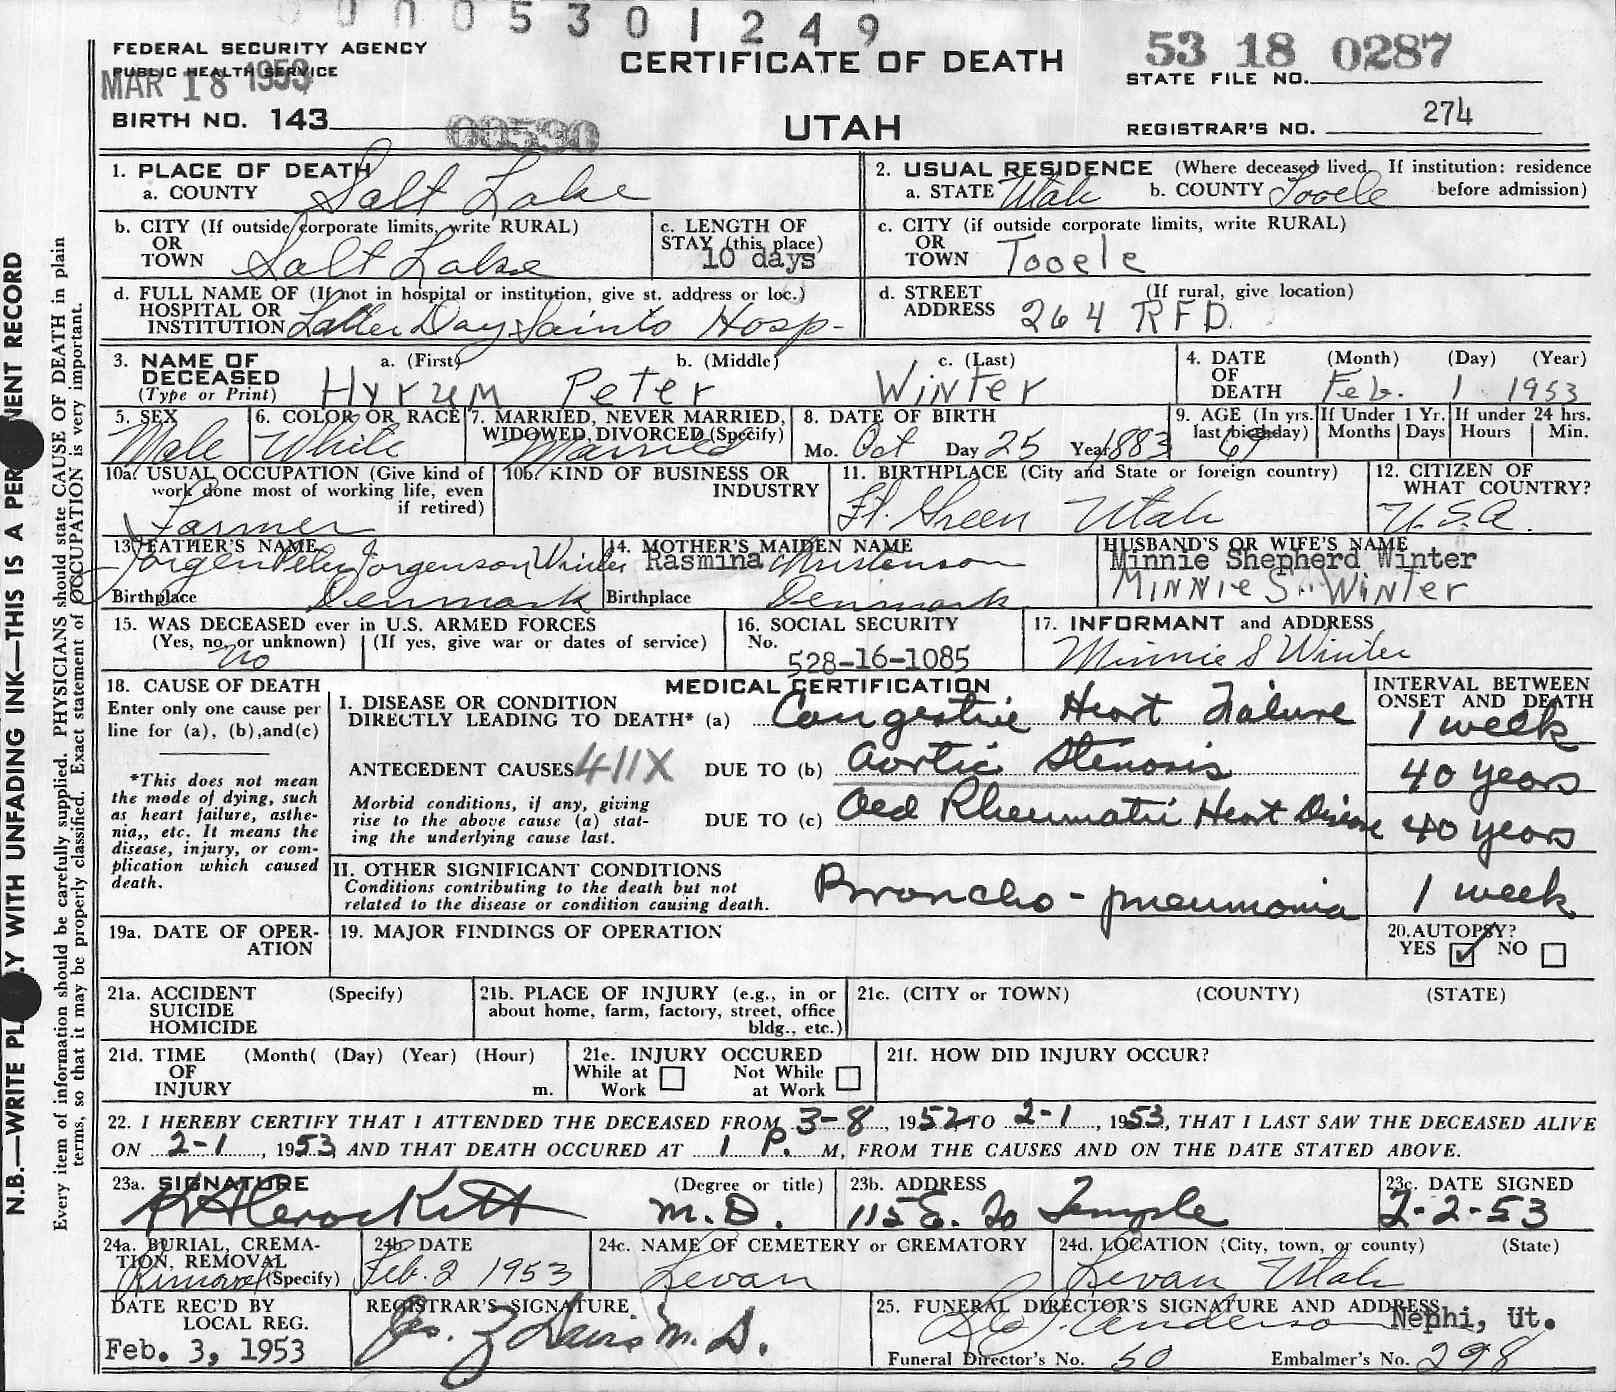 00005301249
FEDERAL SECURITY AGENCY
PUBLIC HEALTH SERVICE
MAR 18 1953
BIRTH NO. 143
00530
CERTIFICATE OF DEATH
UTAH
53 18 0287
STATE FILE NO.
REGISTRAR'S NO. 274
1. PLACE OF DEATH
a. COUNTY Salt Lake
2. USUAL RESIDENCE (Where deceased lived. If institution: residence before admission)
a. STATE Utah b. COUNTY Tooele
b. CITY (If outside corporate limits, write RURAL)
OR
TOWN Salt Lake
c. LENGTH OF
STAY (this place)
10 days
c. CITY (if outside corporate limits, write RURAL)
OR
TOWN Tooele
d. FULL NAME OF (If not in hospital or institution, give st. address or loc.)
HOSPITAL OR
INSTITUTION Latter Day Saints Hosp-
d. STREET (If rural, give location)
ADDRESS 264 RFD.
3. NAME OF a. (First) b. (Middle) c. (Last)
DECEASED
(Type or Print) Hyrum Peter Winter
4. DATE (Month) (Day) (Year)
OF
DEATH Feb. 1 1953
5. SEX
Male
6. COLOR OR RACE
White
7. MARRIED, NEVER MARRIED,
WIDOWED, DIVORCED (Specify)
Married
8. DATE OF BIRTH
Mo. Oct Day 25 Year 1883
9. AGE (In yrs.
last birthday)
69
If Under 1 Yr.
Months Days
If under 24 hrs.
Hours Min.
10a. USUAL OCCUPATION (Give kind of
work done most of working life, even
if retired)
Farmer
10b. KIND OF BUSINESS OR
INDUSTRY
11. BIRTHPLACE (City and State or foreign country)
Ft. Green Utah
12. CITIZEN OF
WHAT COUNTRY?
U.S.A.
13. FATHER'S NAME
Jorgen Peter Jorgenson Winter
Birthplace Denmark
14. MOTHER'S MAIDEN NAME
Rasmina Christenson
Birthplace Denmark
HUSBAND'S OR WIFE'S NAME
Minnie Shepherd Winter
Minnie S. Winter
15. WAS DECEASED ever in U.S. ARMED FORCES
(Yes, no, or unknown) (If yes, give war or dates of service)
No
16. SOCIAL SECURITY
No.
528-16-1085
17. INFORMANT and ADDRESS
Minnie S Winter
18. CAUSE OF DEATH
Enter only one cause per
line for (a), (b), and (c)
*This does not mean
the mode of dying, such
as heart failure, asthe-
nia,, etc. It means the
disease, injury, or com-
plication which caused
death.
MEDICAL CERTIFICATION
I. DISEASE OR CONDITION
DIRECTLY LEADING TO DEATH* (a) Congestive Heart Failure
ANTECEDENT CAUSES 411X DUE TO (b) Aortic Stenosis
Morbid conditions, if any, giving
rise to the above cause (a) stat-
ing the underlying cause last.
DUE TO (c) Old Rheumatic Heart Disease
II. OTHER SIGNIFICANT CONDITIONS
Conditions contributing to the death but not
related to the disease or condition causing death.
Broncho-pneumonia
INTERVAL BETWEEN
ONSET AND DEATH
1 week
40 years
40 years
1 week
19a. DATE OF OPER-
ATION
19. MAJOR FINDINGS OF OPERATION
20. AUTOPSY?
YES ✓ NO
21a. ACCIDENT (Specify)
SUICIDE
HOMICIDE
21b. PLACE OF INJURY (e.g., in or
about home, farm, factory, street, office
bldg., etc.)
21c. (CITY or TOWN) (COUNTY) (STATE)
21d. TIME (Month( (Day) (Year) (Hour)
OF
INJURY m.
21e. INJURY OCCURED
While at Work Not While at Work
21f. HOW DID INJURY OCCUR?
22. I HEREBY CERTIFY THAT I ATTENDED THE DECEASED FROM 3-8, 1952, TO 2-1, 1953, THAT I LAST SAW THE DECEASED ALIVE
ON 2-1, 1953, AND THAT DEATH OCCURED AT 1 P. M, FROM THE CAUSES AND ON THE DATE STATED ABOVE.
23a. SIGNATURE (Degree or title)
Crockett M.D.
23b. ADDRESS
115 E. So Temple
23c. DATE SIGNED
2-2-53
24a. BURIAL, CREMA-
TION, REMOVAL
(Specify)
Removal
24b. DATE
Feb. 2 1953
24c. NAME OF CEMETERY or CREMATORY
Levan
24d. LOCATION (City, town, or county) (State)
Levan Utah
DATE REC'D BY
LOCAL REG.
Feb. 3, 1953
REGISTRAR'S SIGNATURE
Jas. Z Davis M.D.
25. FUNERAL DIRECTOR'S SIGNATURE AND ADDRESS
Anderson Nephi, Ut.
Funeral Director's No. 50 Embalmer's No. 298
N.B.—WRITE PLAINLY WITH UNFADING INK—THIS IS A PERMANENT RECORD
Every item of information should be carefully supplied. PHYSICIANS should state CAUSE OF DEATH in plain
terms, so that it may be properly classified. Exact statement of OCCUPATION is very important.